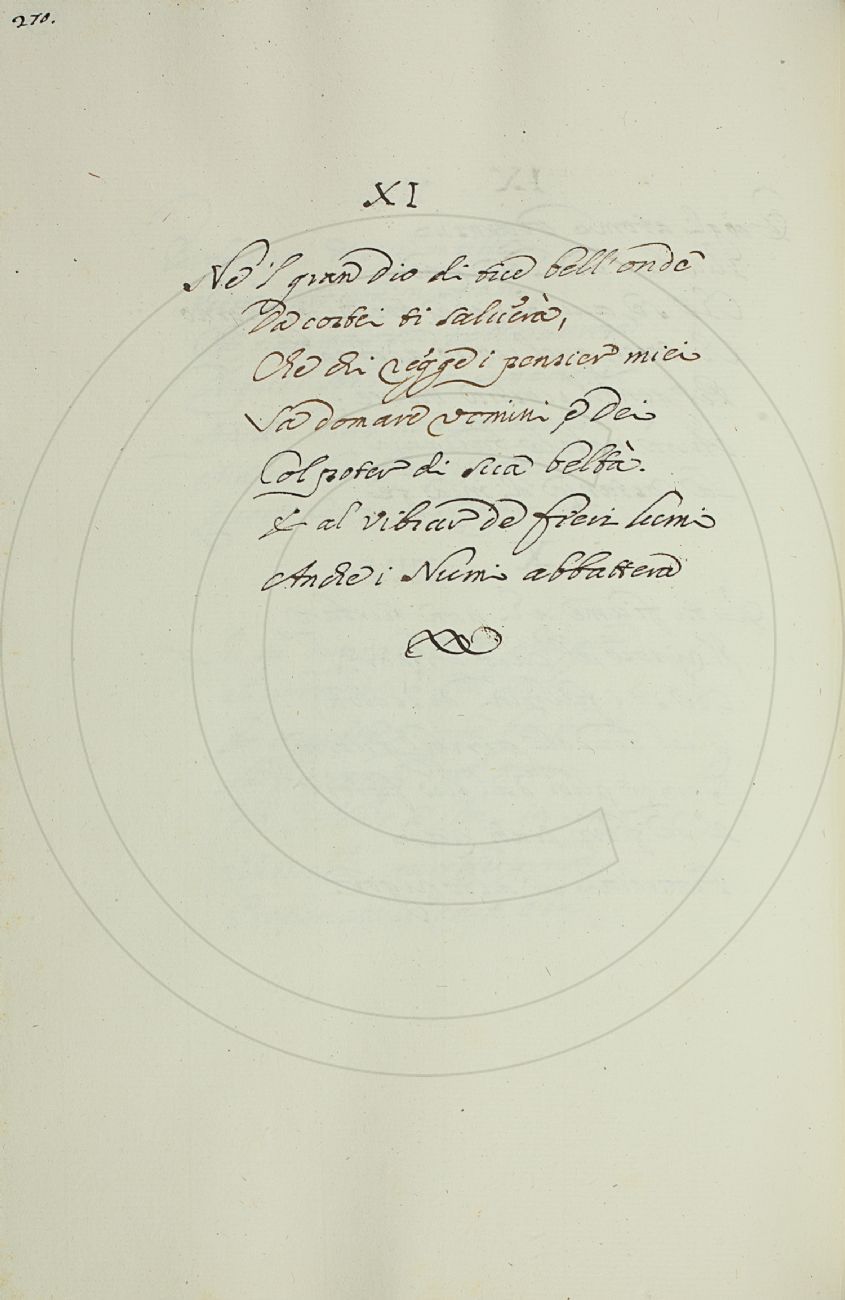 270.
XI
Nè 'l gran dio di tue bell'onde
Da costei ti salverà,
Che chi regge i pensier miei
Sa domare vomini e Dei
Col poter di sua beltà.
E al vibrar de fieri lumi
Anche i Numi abbatterà